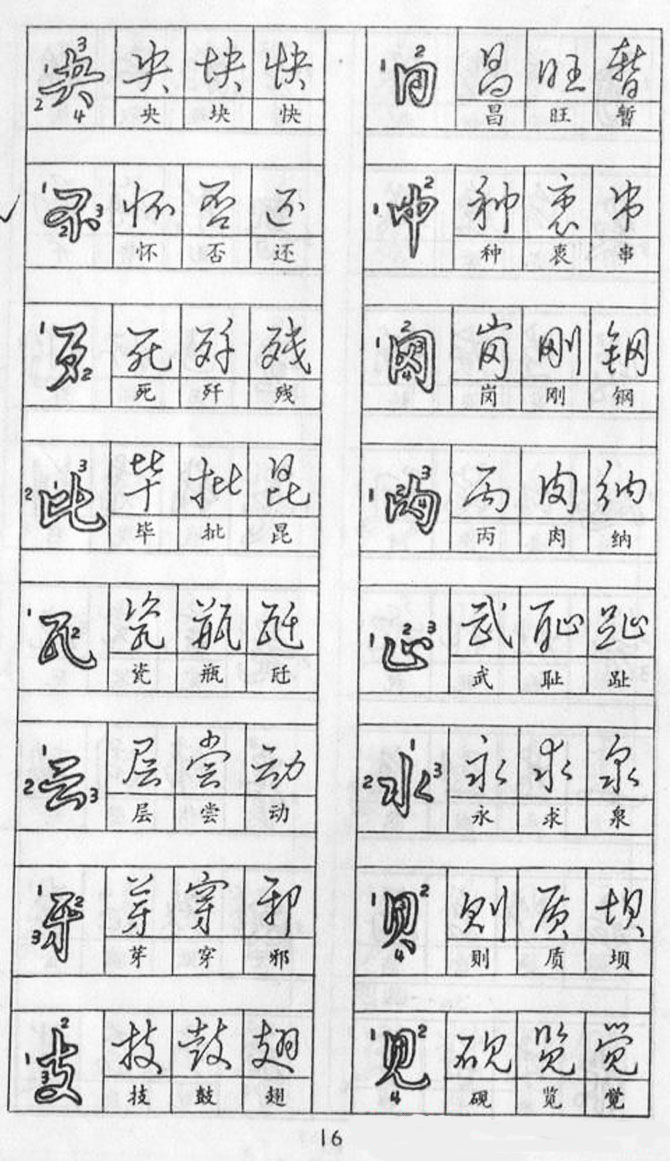 央 央 块 快
央 块 快
不 怀 否 还
怀 否 还
歹 死 歼 残
死 歼 残
比 毕 批 昆
毕 批 昆
瓦 瓷 瓶
瓷 瓶
云 层 尝 动
层 尝 动
牙 芽 穿 邪
芽 穿 邪
支 技 鼓 翅
技 鼓 翅
日 昌 旺 暂
昌 旺 暂
中 种 衷 串
种 衷 串
冈 岗 刚 钢
岗 刚 钢
内 丙 肉 纳
丙 肉 纳
止 武 耻 趾
武 耻 趾
水 永 求 泉
永 求 泉
贝 则 质 坝
则 质 坝
见 砚 览 觉
砚 览 觉
16